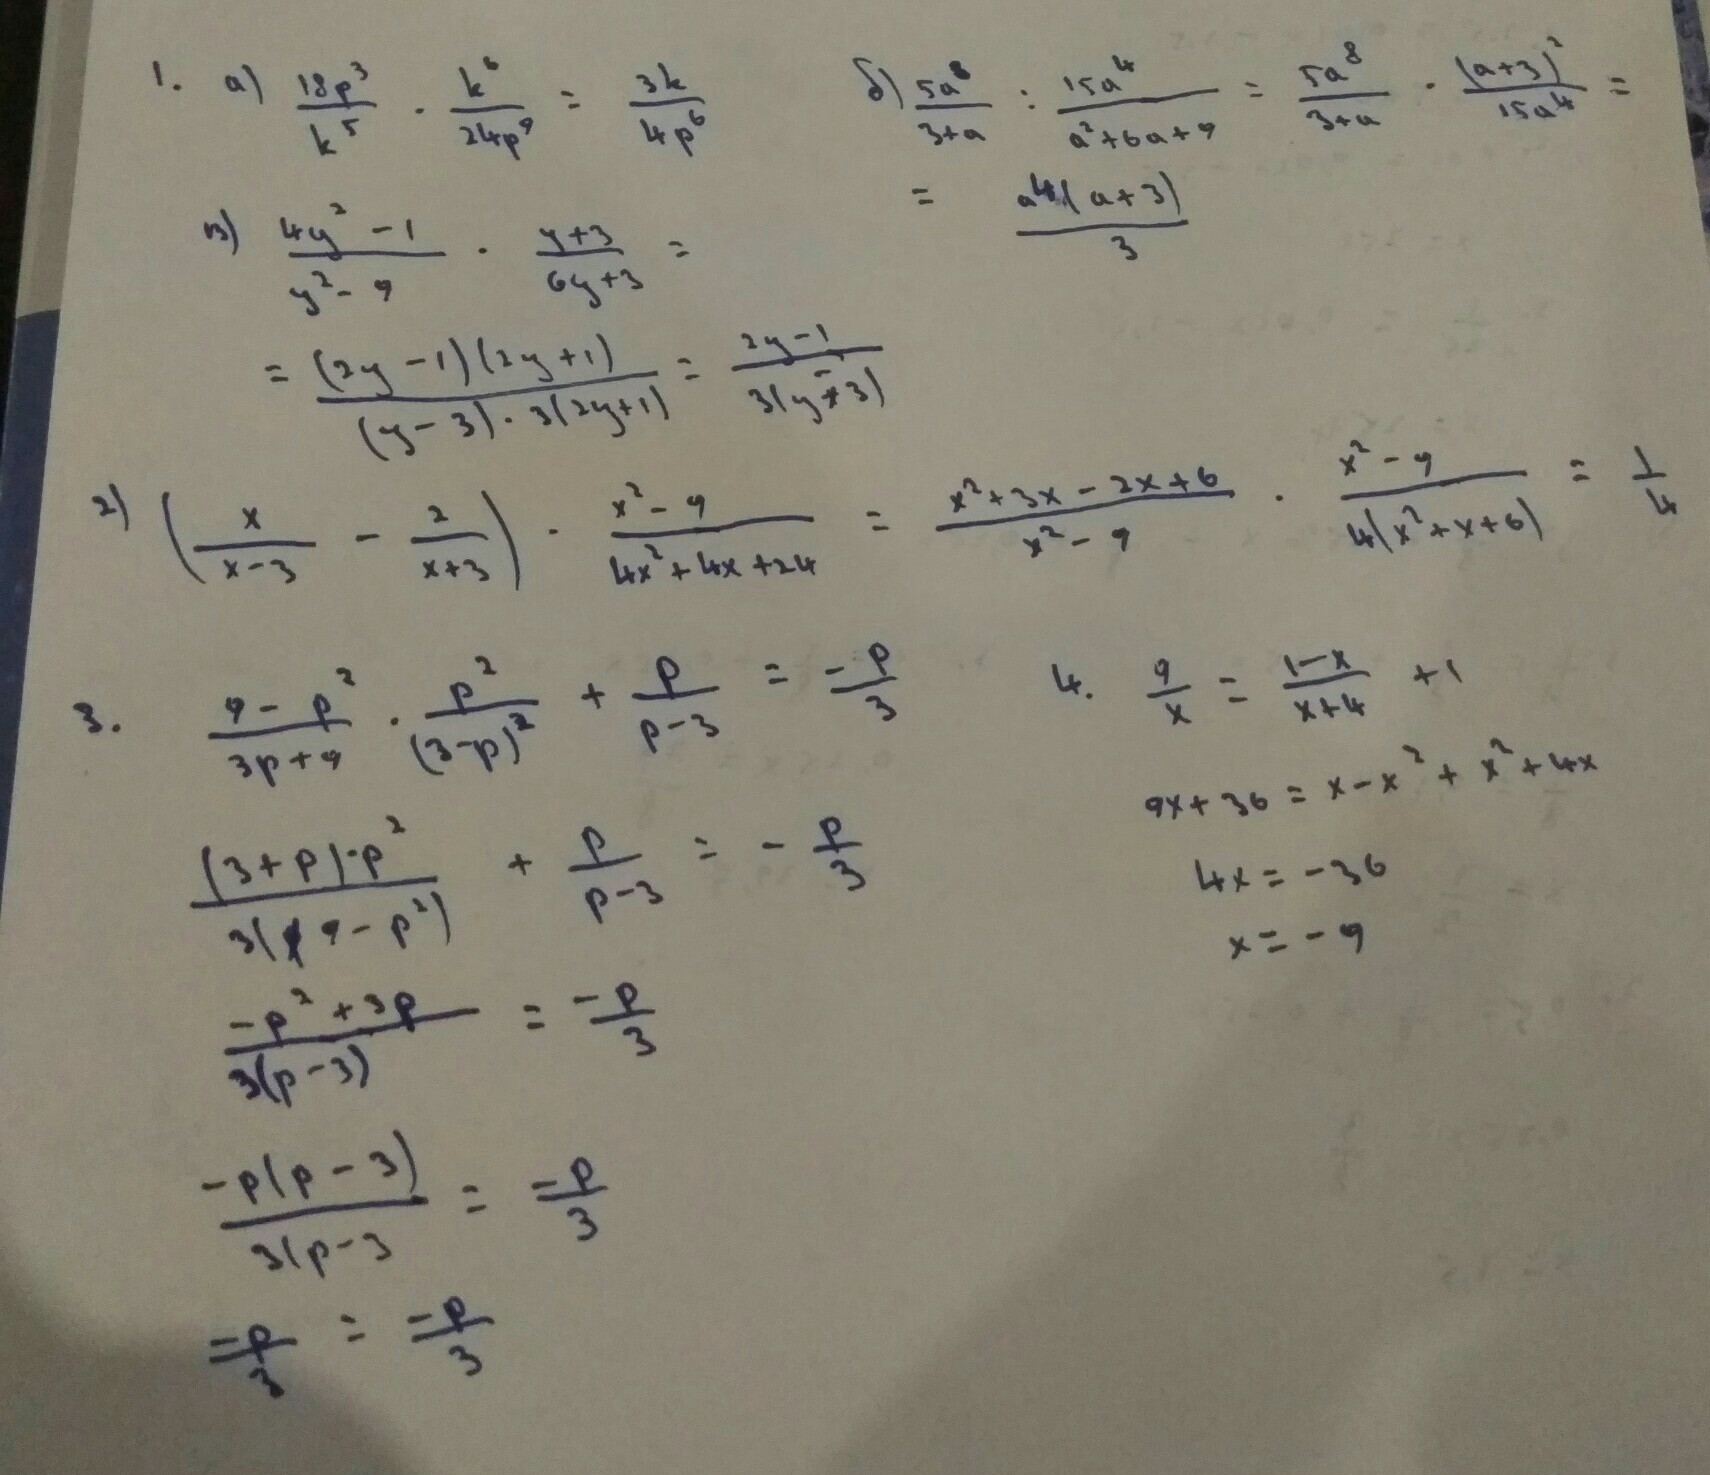 1. а) 18p³/k⁵ · k⁶/24p⁹ = 3k/4p⁶
б) 5a⁸/3+a : 15a⁴/a²+6a+9 = 5a⁸/3+a · (a+3)²/15a⁴ =
= a⁴(a+3)/3
в) 4y²-1/y²-9 · y+3/6y+3 =
= (2y-1)(2y+1)/(y-3)·3(2y+1) = 2y-1/3(y-3)
2) (x/x-3 - 2/x+3) · x²-9/4x²+4x+24 = x²+3x-2x+6/x²-9 · x²-9/4(x²+x+6) = 1/4
3. 9-p²/3p+9 · p²/(3-p)² + p/p-3 = -p/3
(3+p)·p²/3(9-p²) + p/p-3 = -p/3
-p²+3p/3(p-3) = -p/3
-p(p-3)/3(p-3 = -p/3
-p/3 = -p/3
4. 9/x = 1-x/x+4 +1
9x+36 = x-x²+x²+4x
4x = -36
x = -9